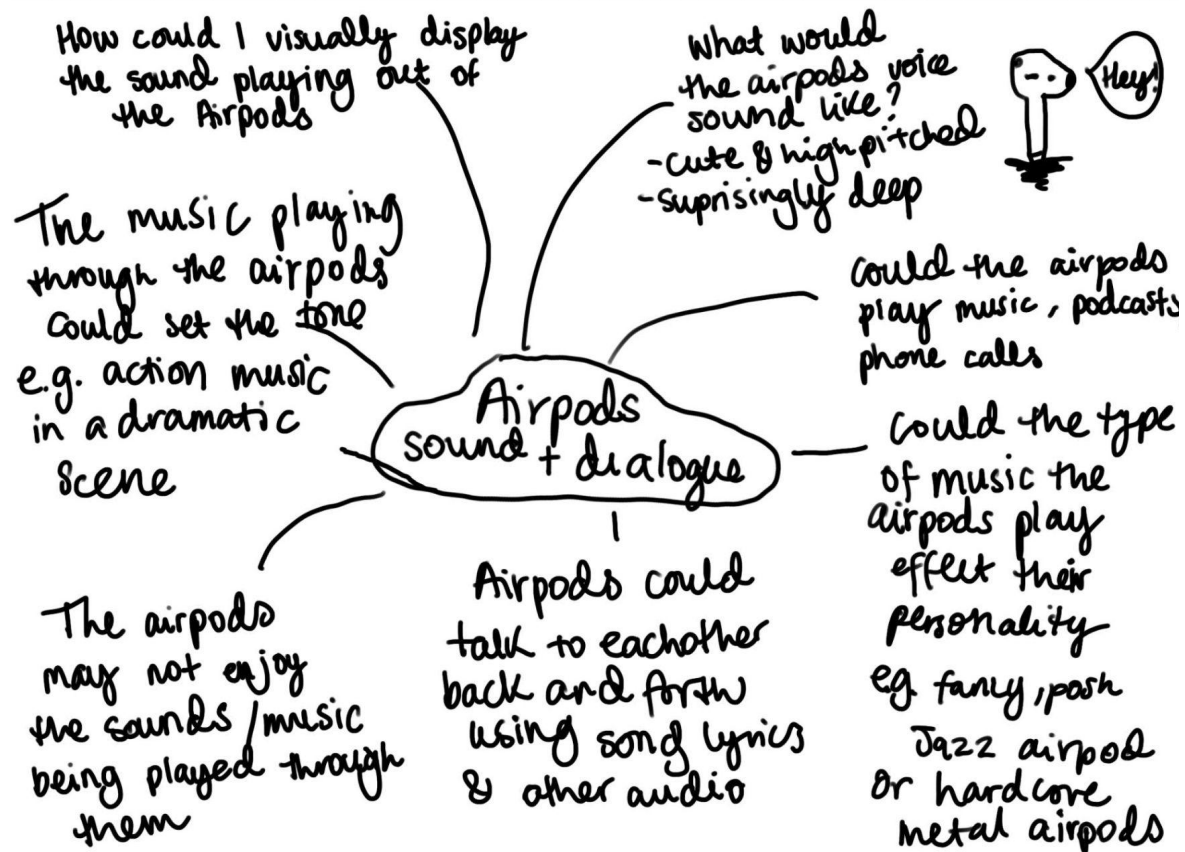 How could I visually display
the sound playing out of
the Airpods
What would
the airpods voice
sound like?
-cute & high pitched
-suprisingly deep
Hey!
The music playing
through the airpods
could set the tone
e.g. action music
in a dramatic
scene
could the airpods
play music, podcasts,
phone calls
Airpods
sound + dialogue
could the type
of music the
airpods play
effect their
personality
eg. fancy, posh
Jazz airpod
or hardcore
metal airpods
The airpods
may not enjoy
the sounds/music
being played through
them
Airpods could
talk to eachother
back and forth
using song lyrics
& other audio